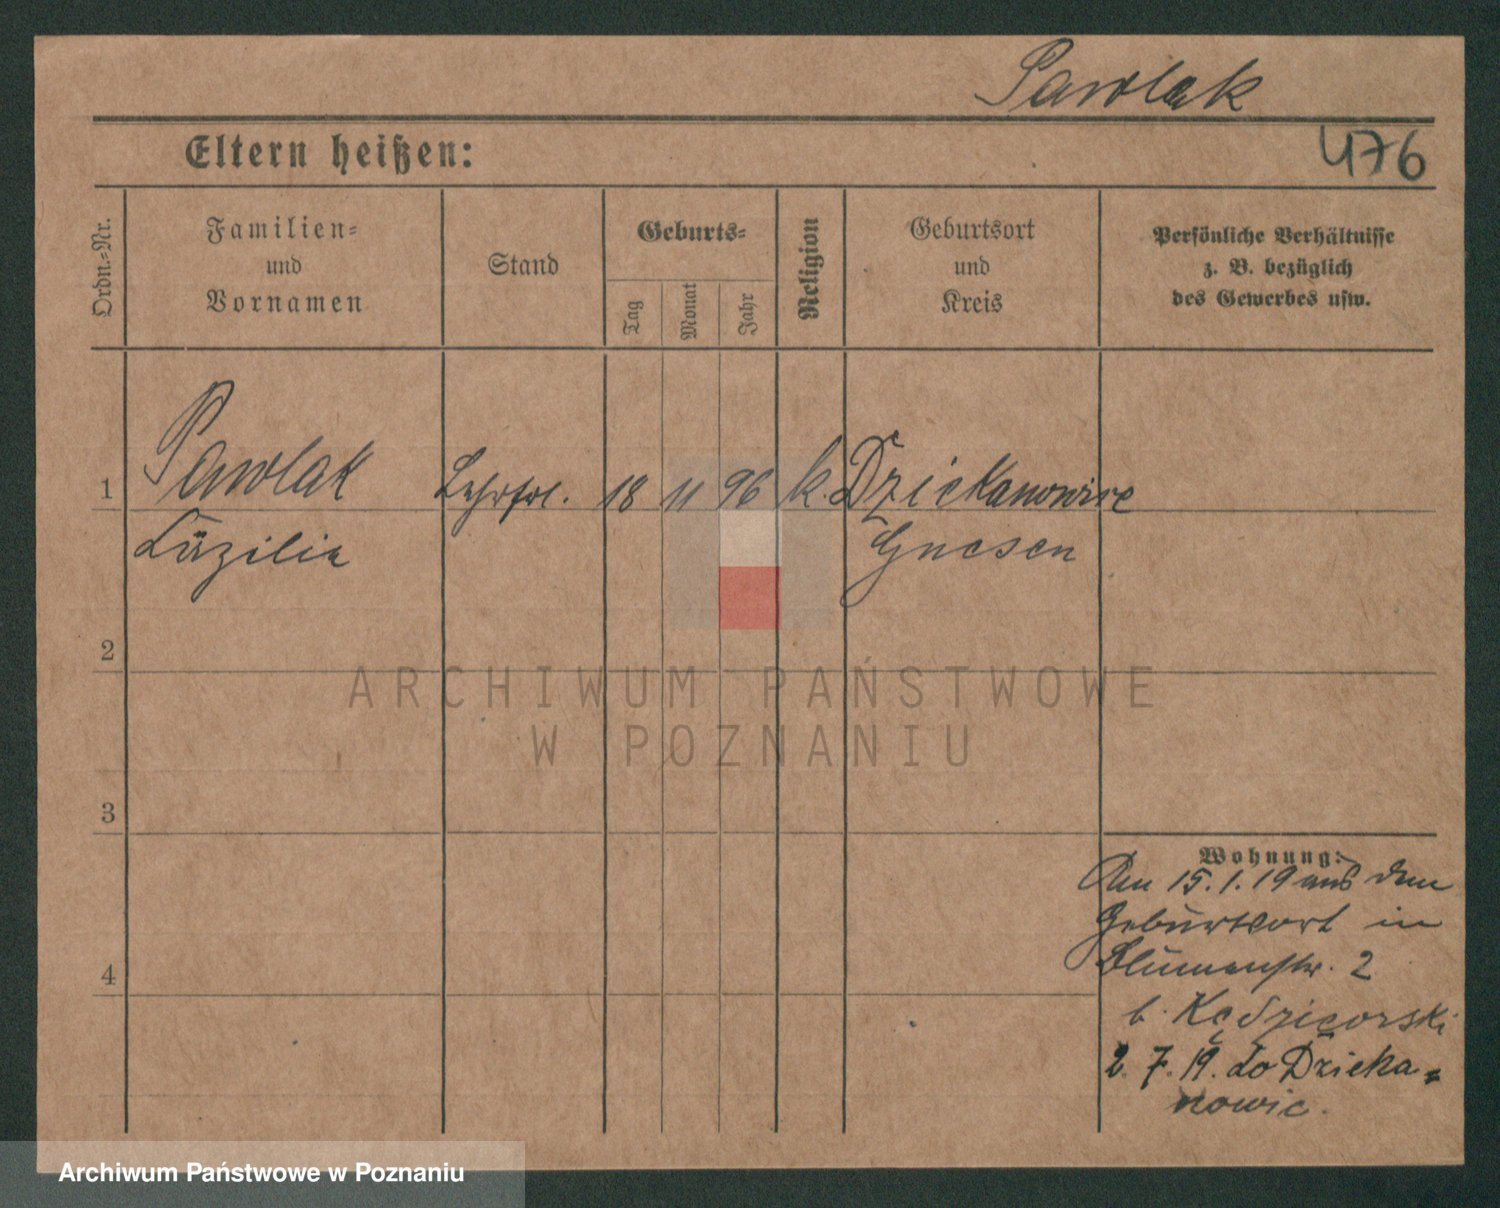 Pawlak
Eltern heißen:
476
Ordn.-Nr.
Familien-
und
Vornamen
Stand
Geburts-
Tag
Monat
Jahr
Religion
Geburtsort
und
Kreis
Persönliche Verhältnisse
z. B. bezüglich
des Gewerbes usw.
1
Pawlak
Lehrfrl. 18 11 96 k. Dziekanowice
Cäzilie
Gnesen
2
ARCHIWUM PAŃSTWOWE
W POZNANIU
3
4
Wohnung:
Am 15.1.19 aus dem
Geburtsort in
Blumenstr. 2
b. Kędzierski
2. 7. 19. do Dzieka=
nowic.
Archiwum Państwowe w Poznaniu